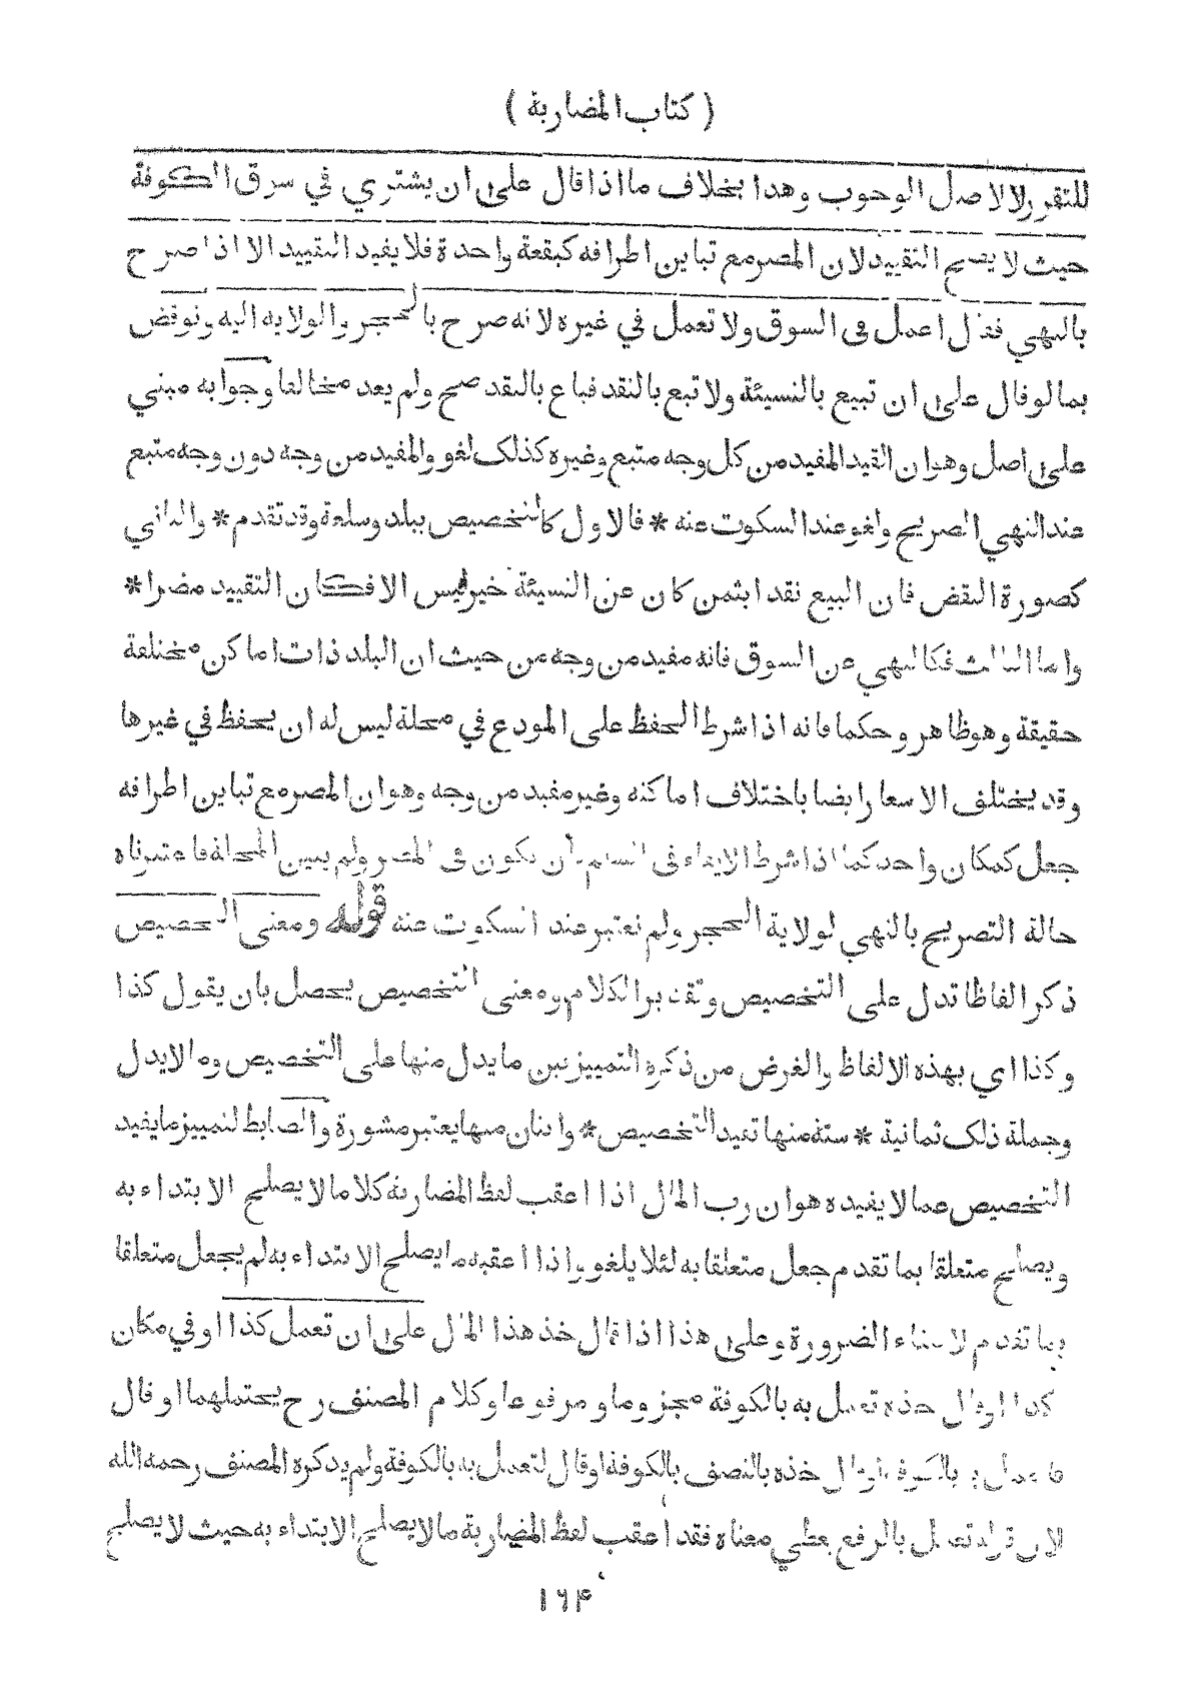 ( كتاب المضاربة )
للتقرر لا لاصل الوجوب وهذا بخلاف ما اذا قال على ان يشتري في سوق الكوفة
حيث لا يصح التقييد لان المصر مع تباين اطرافه كبقعة واحدة فلا يفيد التقييد الا اذا صرح
بالنهي فقال اعمل في السوق ولا تعمل في غيره لانه صرح بالحجر والولايه اليه ونوقض
بما لو قال على ان تبيع بالنسيئة ولا تبع بالنقد فباع بالنقد صح ولم يعد مخالفا وجوابه مبني
على اصل وهو ان القيد المفيد من كل وجه متبع وغيره كذلك لغو والمفيد من وجه دون وجه متبع
عند النهي الصريح ولغو عند السكوت عنه * فالاول كالتخصيص ببلد وسلعة وقد تقدم * والثاني
كصورة النقض فان البيع نقدا بثمن كان عن النسيئة خير فليس الا فكان التقييد مضرا *
واما الثالث فكالنهي عن السوق فانه مفيد من وجه من حيث ان البلد ذات اماكن مختلفة
حقيقة وهو ظاهر وحكما فانه اذا شرط الحفظ على المودع في محلة ليس له ان يحفظ في غيرها
وقد يختلف الاسعار ايضا باختلاف اماكنه وغير مفيد من وجه وهو ان المصر مع تباين اطرافه
جعل كمكان واحد كما اذا شرط الايفاء في السلم بان يكون في المصر ولم يبين المحلة فاعتبرناه
حالة التصريح بالنهي لولاية الحجر ولم نعتبر عند السكوت عنه قوله ومعنى التخصيص
ذكر الفاظا تدل على التخصيص وتقدير الكلام ومعنى التخصيص يحصل بان يقول كذا
وكذا اي بهذه الالفاظ والغرض من ذكره التمييز بين ما يدل منها على التخصيص وما لا يدل
وجملة ذلك ثمانية * ستة منها تفيد التخصيص * واثنان منها يعتبر مشورة والضابط لتمييز ما يفيد
التخصيص عما لا يفيده هو ان رب المال اذا اعقب لفظ المضاربة كلاما لا يصلح الابتداء به
ويصلح متعلقا بما تقدم جعل متعلقا به لئلا يلغو واذا اعقبه ما يصلح الابتداء به لم يجعل متعلقا
بما تقدم لانتفاء الضرورة وعلى هذا اذا قال خذ هذا المال على ان تعمل كذا او في مكان
كذا او قال خذه تعمل به بالكوفة مجزوما و مرفوعا وكلام المصنف رح يحتملهما او قال
فاعمل به بالكوفة او قال خذه بالنصف بالكوفة او قال لتعمل به بالكوفة ولم يذكره المصنف رحمه الله
لان قوله تعمل بالرفع يعطي معناه فقد اعقب لفظ المضاربة مالا يصلح الابتداء به حيث لا يصلح
۱۶۴